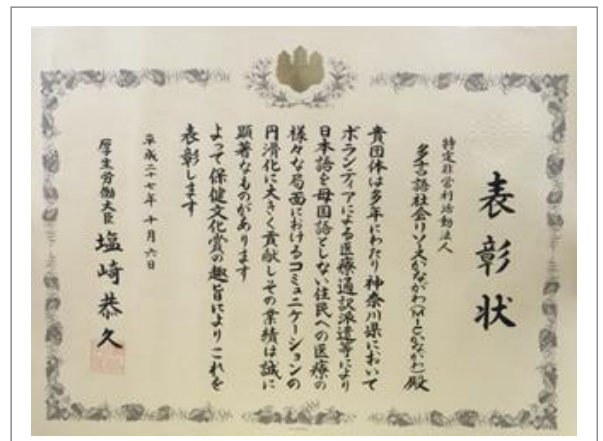 表彰状
特定非営利活動法人
多言語社会リソースかながわ(MICかながわ)殿
貴団体は多年にわたり神奈川県において
ボランティアによる医療通訳派遣等により
日本語を母国語としない住民への医療の
様々な局面におけるコミュニケーションの
円滑化に大きく貢献しその業績は誠に
顕著なものがあります
よって保健文化賞の趣旨によりこれを
表彰します
平成二十七年十月六日
厚生労働大臣 塩崎恭久